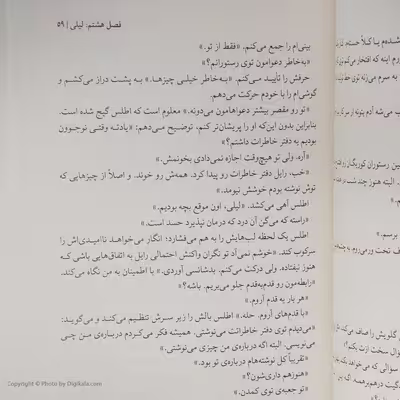 فصل هشتم: لیلی | ۵۹
بینی‌ام را جمع می‌کنم. «فقط از تو.»
«به‌خاطر دعوامون توی رستورانم؟»
حرفش را تأیید می‌کنم. «به‌خاطر خیلی چیزها.» به پشت دراز می‌کشم و
گوشی‌ام را با خودم حرکت می‌دهم.
«تو رو مقصر بیشتر دعواهامون می‌دونه.» معلوم است که اطلس گیج شده است.
بنابراین بدون این‌که او را پریشان‌تر کنم، توضیح می‌دهم: «یادته وقتی نوجوون
بودیم یه دفتر خاطرات داشتم؟»
«آره. ولی تو هیچ‌وقت اجازه نمی‌دادی بخونمش.»
«خب، رایل دفتر خاطرات رو پیدا کرد. همه‌ش رو خوند. و اصلاً از چیزهایی که
توش نوشته بودم خوشش نیومد.»
اطلس آهی می‌کشد. «لیلی، اون موقع بچه بودیم.»
«راسته که می‌گن آن درد که درمان نپذیرد حسد است.»
اطلس یک لحظه لب‌هایش را به هم می‌فشارد؛ انگار می‌خواهد ناامیدی‌اش را
سرکوب کند. «خوشم نمی‌آد تو نگران واکنش احتمالی رایل به اتفاق‌هایی باشی که
هنوز نیفتاده. ولی درکت می‌کنم. بدشانسی آوردی.» با اطمینان به من نگاه می‌کند.
«رابطه‌مون رو قدم‌به‌قدم جلو می‌بریم. باشه؟»
«هر بار یه قدم آروم.»
«با قدم‌های آروم. حله.» اطلس بالش را زیر سرش تنظیم می‌کند و می‌گوید:
«می‌دیدم توی دفتر خاطراتت می‌نوشتی. همیشه فکر می‌کردم درباره‌ی من چی
می‌نویسی. البته اگه درباره‌ی من چیزی می‌نوشتی.»
«تقریباً کل نوشته‌هام درباره‌ی تو بود.»
«هنوزم داری‌شون؟»
«تو جعبه‌ی توی کمدن.»
Copyright © Photo by Digikala.com